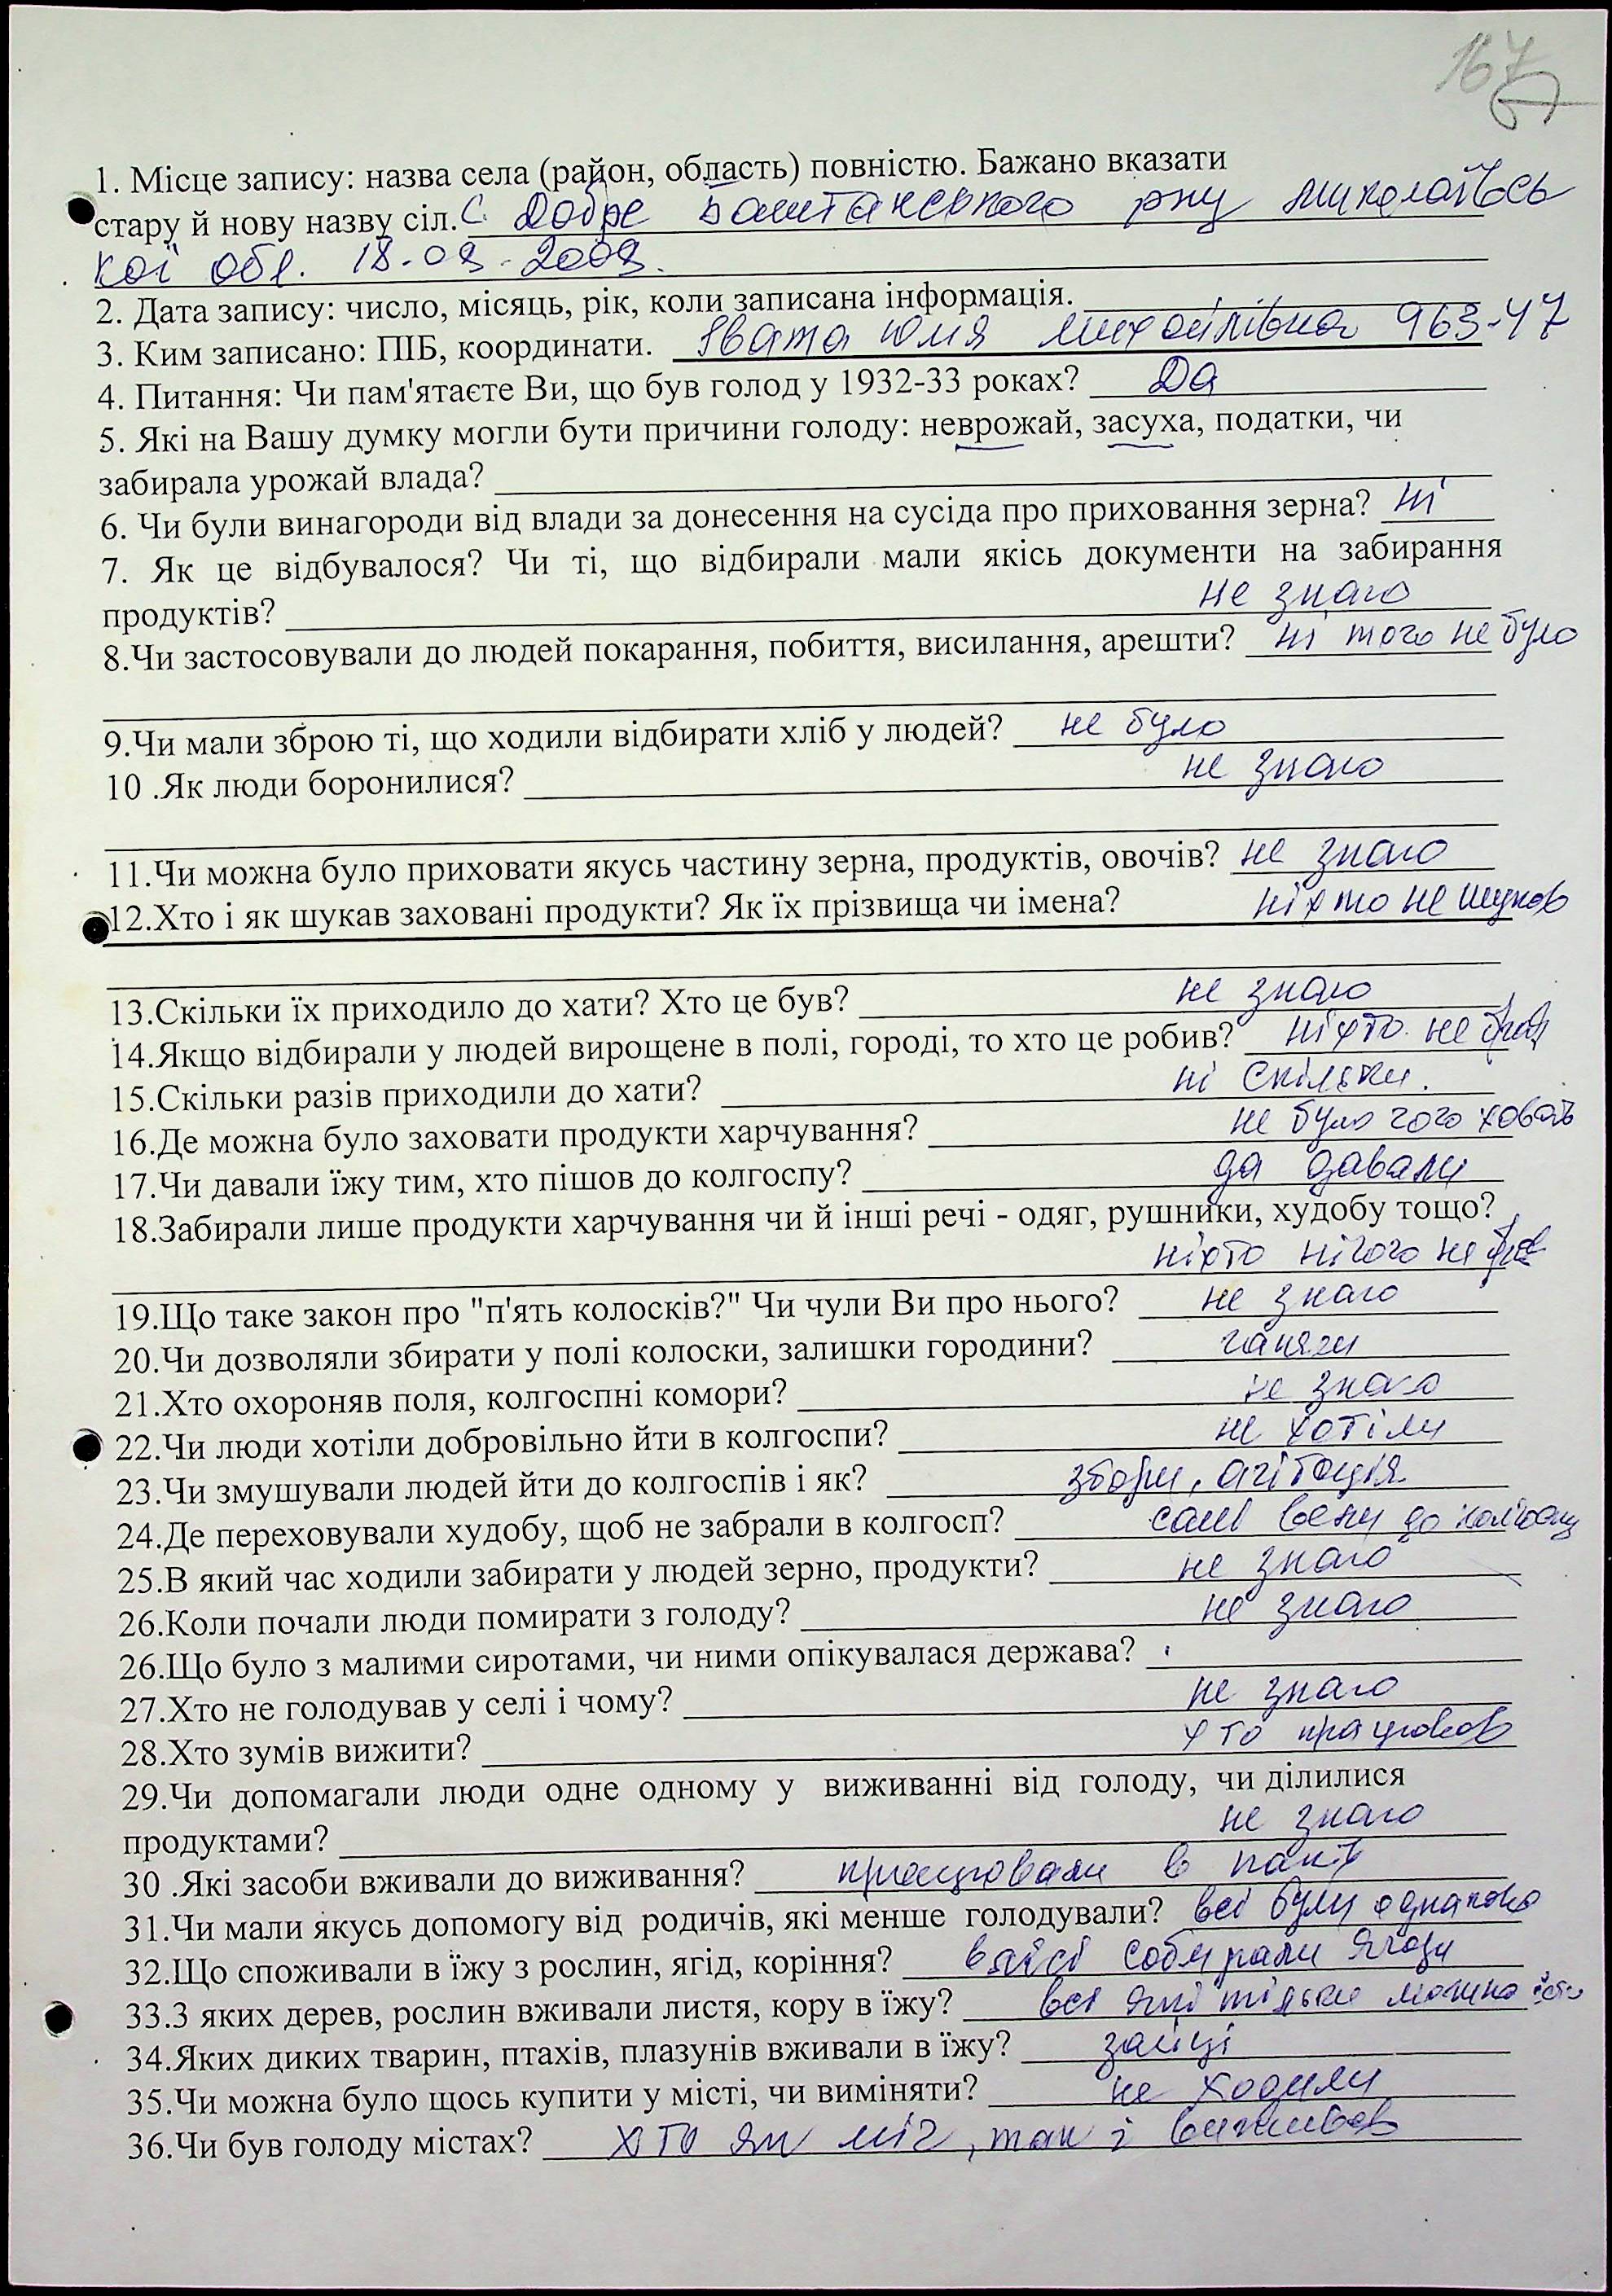 167
1. Місце запису: назва села (район, область) повністю. Бажано вказати
стару й нову назву сіл. с. Добре Баштанського рну Миколаївсь
кої обл. 18.09.2009.
2. Дата запису: число, місяць, рік, коли записана інформація.
3. Ким записано: ПІБ, координати. Юлія Михайлівна 963-47
4. Питання: Чи пам'ятаєте Ви, що був голод у 1932-33 роках? Да
5. Які на Вашу думку могли бути причини голоду: неврожай, засуха, податки, чи
забирала урожай влада?
6. Чи були винагороди від влади за донесення на сусіда про приховання зерна? ні
7. Як це відбувалося? Чи ті, що відбирали мали якісь документи на забирання
продуктів? не знаю
8.Чи застосовували до людей покарання, побиття, висилання, арешти? ні того не було
9.Чи мали зброю ті, що ходили відбирати хліб у людей? не було
10 .Як люди боронилися? не знаю
11.Чи можна було приховати якусь частину зерна, продуктів, овочів? не знаю
12.Хто і як шукав заховані продукти? Як їх прізвища чи імена? ніхто не шукав
13.Скільки їх приходило до хати? Хто це був? не знаю
14.Якщо відбирали у людей вирощене в полі, городі, то хто це робив? ніхто не брав
15.Скільки разів приходили до хати? ні скільки.
16.Де можна було заховати продукти харчування? не було чого ховать
17.Чи давали їжу тим, хто пішов до колгоспу? да давали
18.Забирали лише продукти харчування чи й інші речі - одяг, рушники, худобу тощо?
ніхто нічого не брав
19.Що таке закон про "п'ять колосків?" Чи чули Ви про нього? не знаю
20.Чи дозволяли збирати у полі колоски, залишки городини? ганяли
21.Хто охороняв поля, колгоспні комори? не знаю
22.Чи люди хотіли добровільно йти в колгоспи? не хотіли
23.Чи змушували людей йти до колгоспів і як? збори, агітація
24.Де переховували худобу, щоб не забрали в колгосп? самі вели до
25.В який час ходили забирати у людей зерно, продукти? не знаю
26.Коли почали люди помирати з голоду? не знаю
26.Що було з малими сиротами, чи ними опікувалася держава?
27.Хто не голодував у селі і чому? не знаю
28.Хто зумів вижити? хто працював
29.Чи допомагали люди одне одному у виживанні від голоду, чи ділилися
продуктами? не знаю
30 .Які засоби вживали до виживання? працювали в
31.Чи мали якусь допомогу від родичів, які менше голодували? всі були однаково
32.Що споживали в їжу з рослин, ягід, коріння? в лісі собирали ягоди
33.З яких дерев, рослин вживали листя, кору в їжу? всі які тільки можно їсти
34.Яких диких тварин, птахів, плазунів вживали в їжу? зайці
35.Чи можна було щось купити у місті, чи виміняти? не ходили
36.Чи був голоду містах? хто як міг, так і виживав